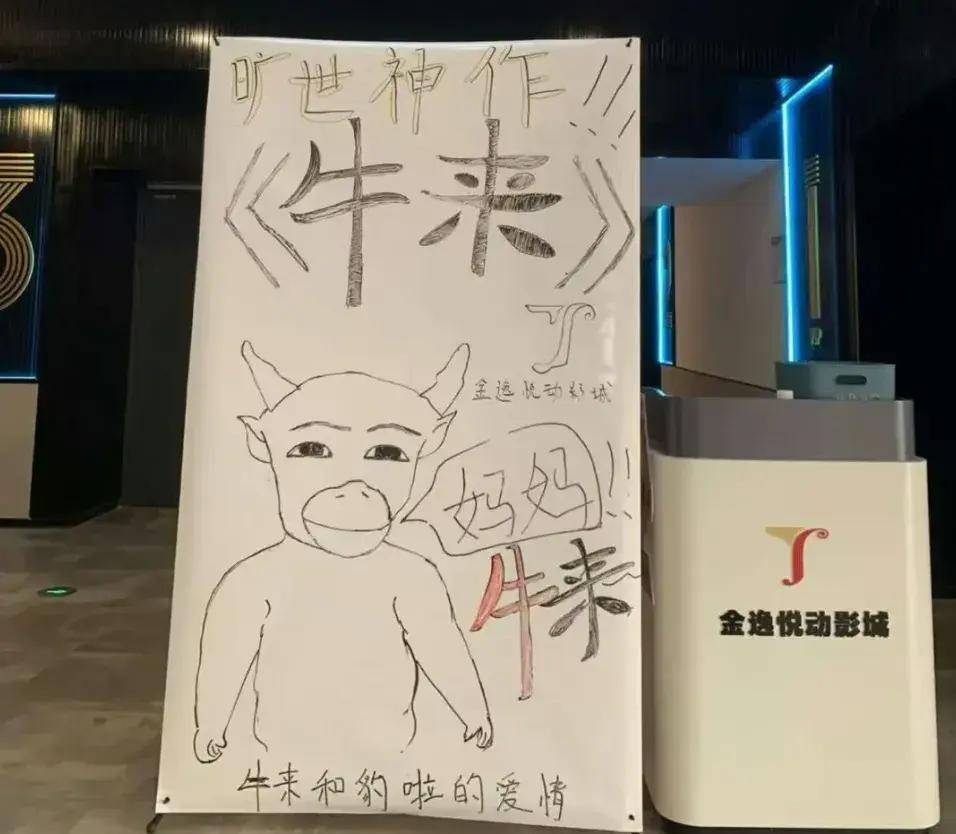 旷世神作!!
《牛来》
金逸悦动影城
妈妈!!
牛来~
牛来和豹啦的爱情
金逸悦动影城